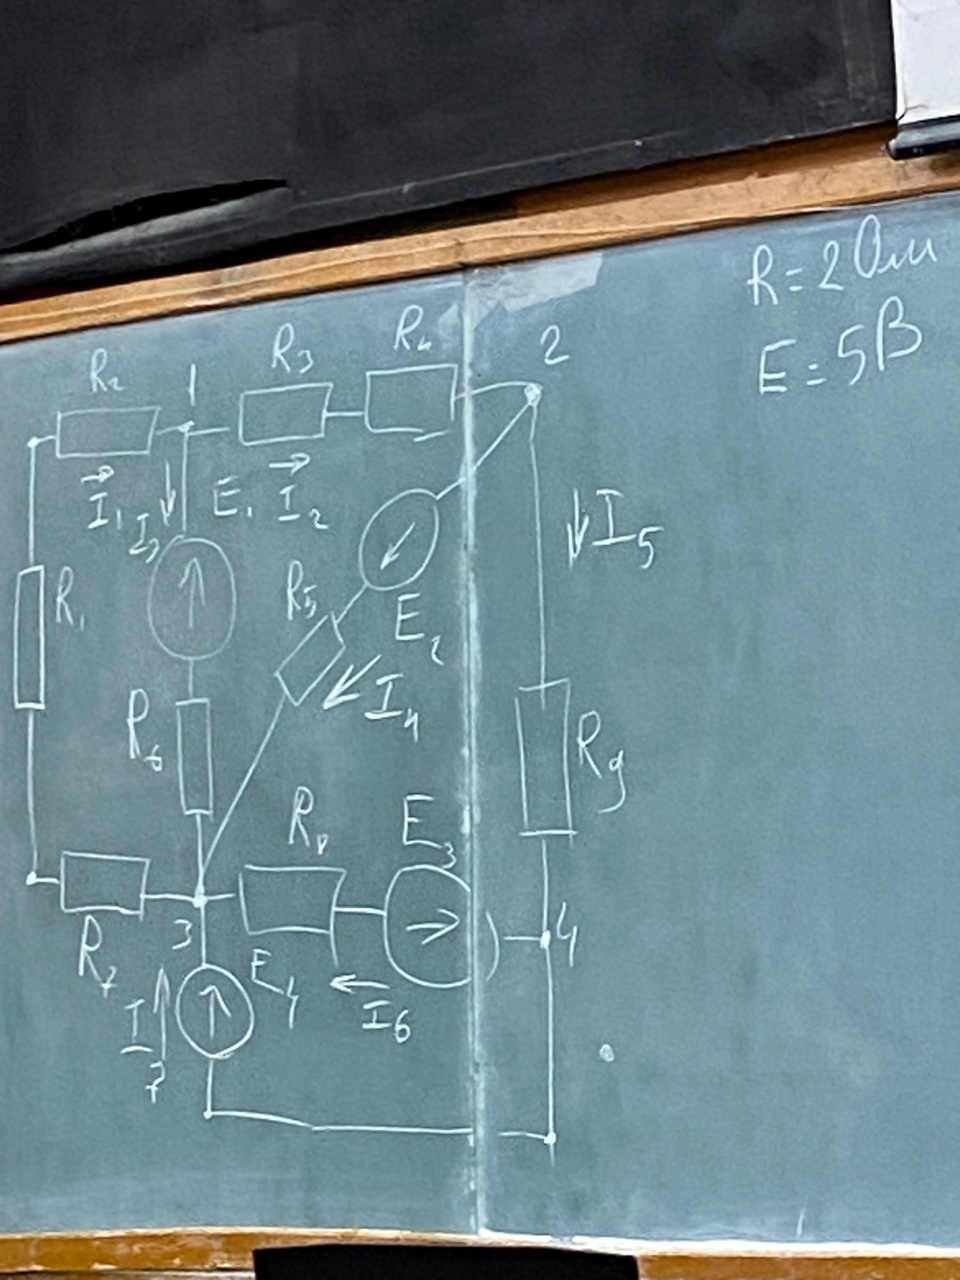 R=2Ом
E=5В
R₂ 1 R₃ R₄ 2
I₁ I₃ E₁ I₂
I₅
R₁ R₅ E₂
I₄
R₆ R₉
R₈ E₃
3 4
R₇ E₄ I₆
I₇